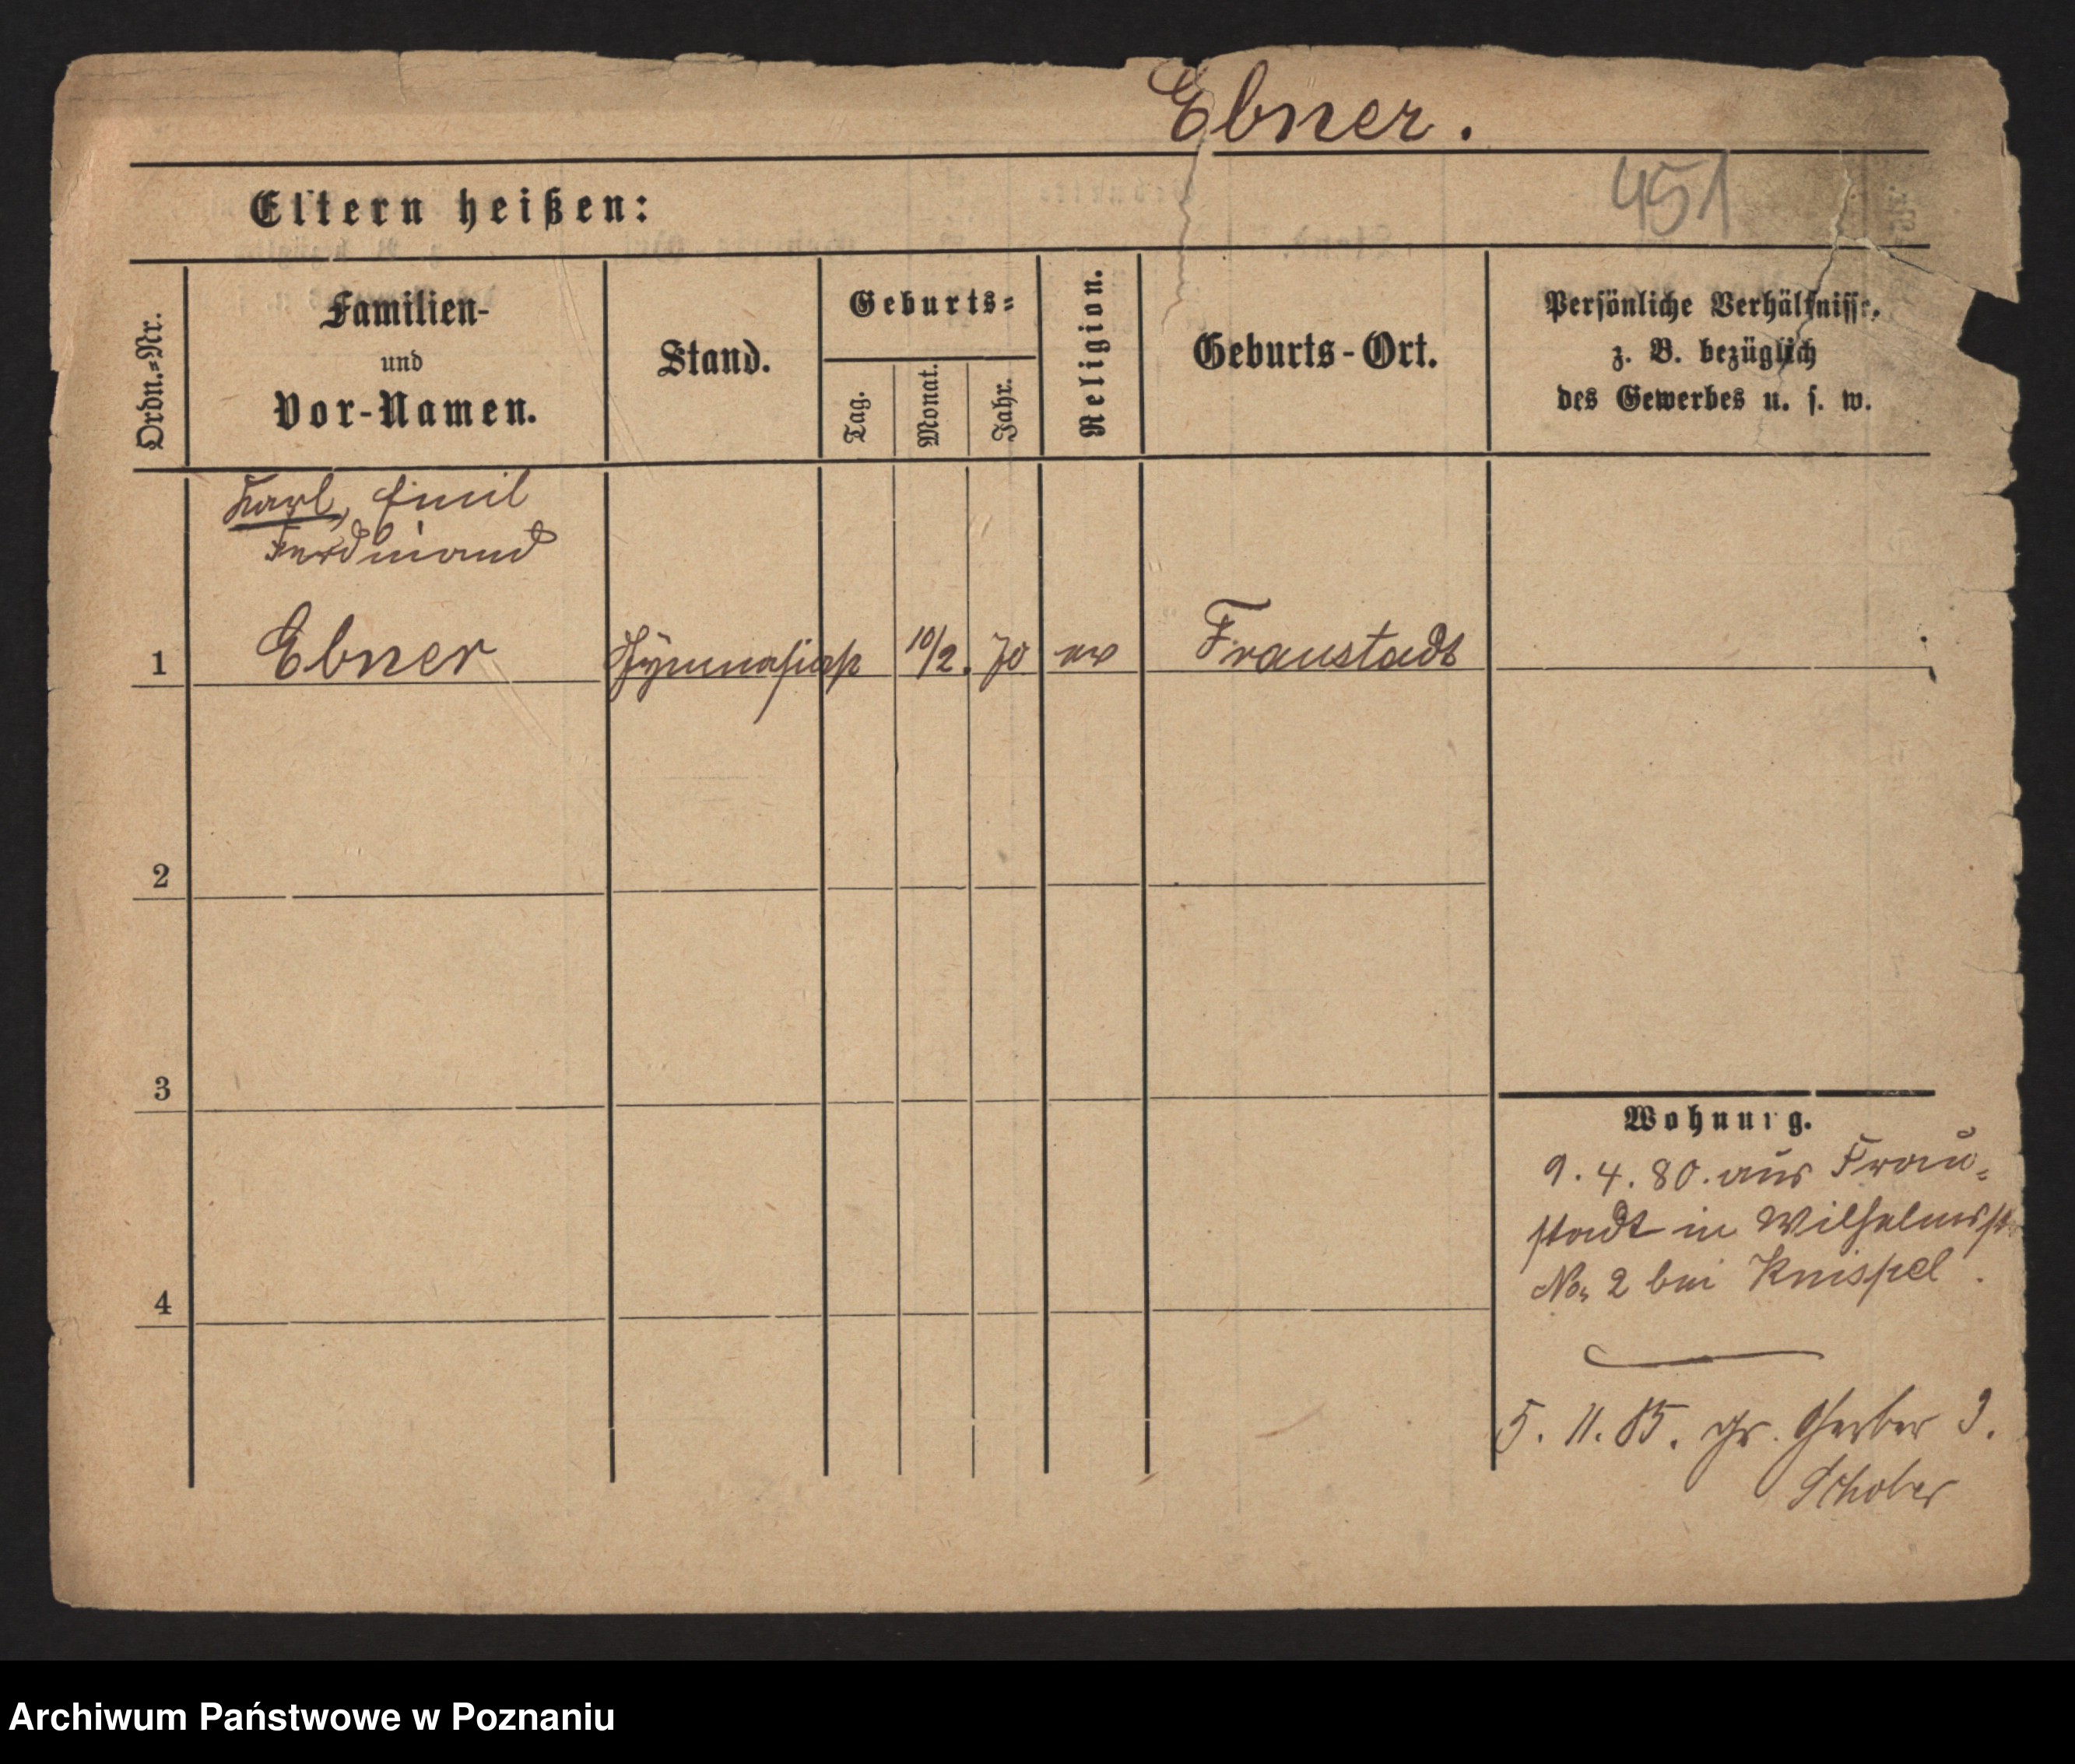 Ebner.
451
Eltern heißen:
Ordn.=Nr.
Familien-
und
Vor-Namen.
Stand.
Geburts=
Tag.
Monat.
Jahr.
Religion.
Geburts-Ort.
Persönliche Verhältnisse,
z. B. bezüglich
des Gewerbes u. s. w.
Karl, Emil
Ferdinand
1 Ebner Gymnasiast 10/2. 70 ev Fraustadt
2
3
4
Wohnung.
9. 4. 80. aus Frau=
stadt in Wilhelmsstr
No. 2 bei Knispel.
5. 11. 85. gr. Gerber 3.
Schober
Archiwum Państwowe w Poznaniu